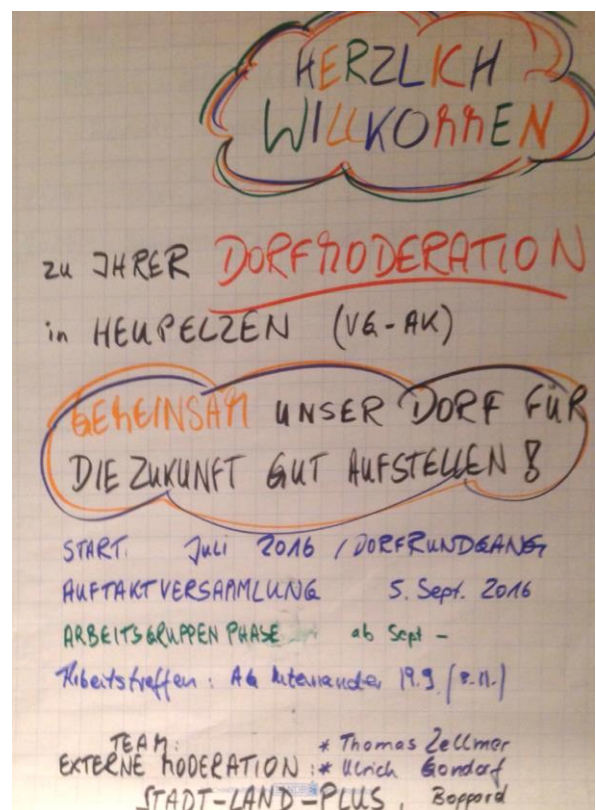 HERZLICH
WILLKOMMEN
zu IHRER DORFMODERATION
in HEUPELZEN (VG-AK)
GEMEINSAM UNSER DORF FÜR
DIE ZUKUNFT GUT AUFSTELLEN!
START: Juli 2016 / DORFRUNDGANG
AUFTAKTVERSAMMLUNG 5. Sept. 2016
ARBEITSGRUPPENPHASE ab Sept -
Arbeitstreffen: AG Miteinander 19.9. (8.11.)
TEAM: * Thomas Zellmer
EXTERNE MODERATION: * Ulrich Gondorf
STADT-LAND-PLUS Boppard